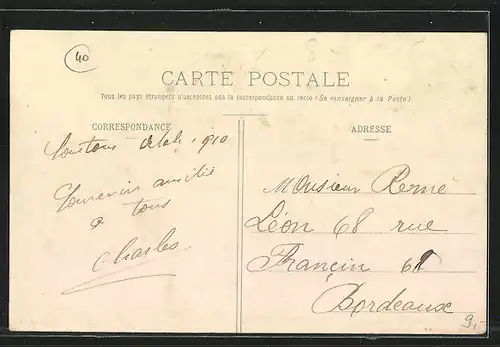 40
CARTE POSTALE
Tous les pays étrangers n'acceptent pas la correspondance au recto (Se renseigner à la Poste)
CORRESPONDANCE
ADRESSE
1910
Souvenir amitié
à tous
Charles
Monsieur René
Léon 68 rue
Françin 68
Bordeaux
9,-